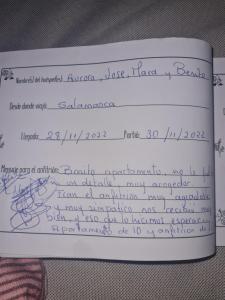 Nombre(s) del huésped(es): Aurora, Jose, Mara y Benito
Desde donde viaja: Salamanca
Llegada: 28/11/2022 Partida: 30 /11/2022
Mensaje para el anfitrión: Bonito apartamento, no le
un detalle, muy acogedor
Ivan el anfitrión muy agradable
y muy simpático nos recibió muy
bien, y eso que lo hicimos esperar.
Apartamento de 10 y anfitrión de